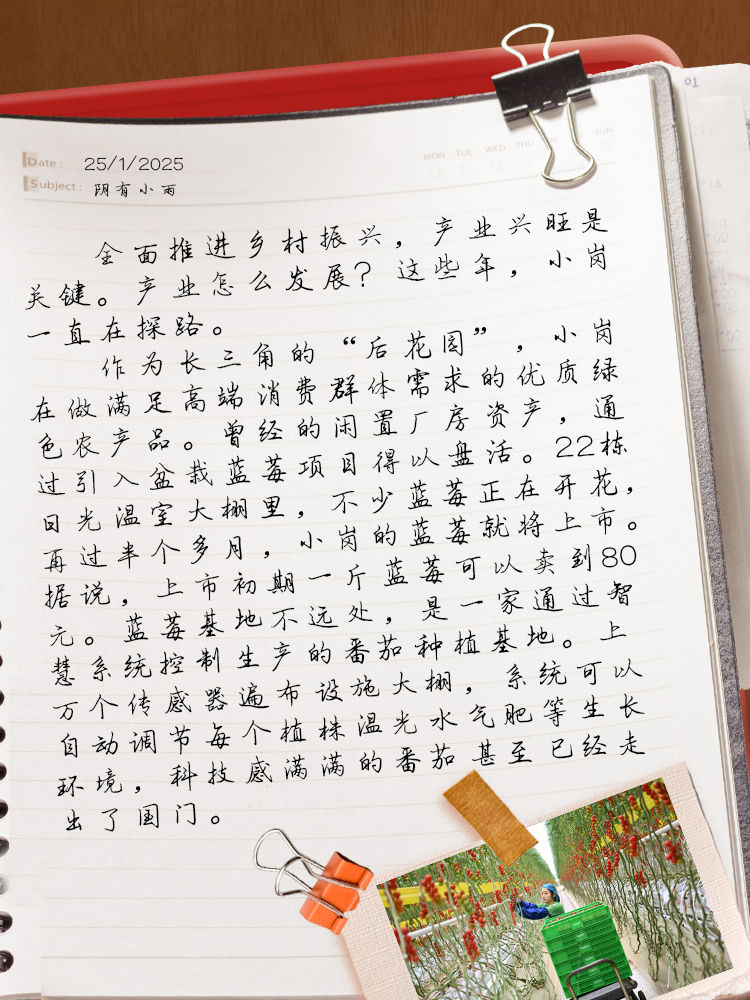 To
Date: 25/1/2025
MON TUE WED THU SUN
Subject: 阴有小雨
全面推进乡村振兴，产业兴旺是
关键。产业怎么发展？这些年，小岗
一直在探路。
作为长三角的“后花园”，小岗
在做满足高端消费群体需求的优质绿
色农产品。曾经的闲置厂房资产，通
过引入盆栽蓝莓项目得以盘活。22栋
日光温室大棚里，不少蓝莓正在开花，
再过半个多月，小岗的蓝莓就将上市。
据说，上市初期一斤蓝莓可以卖到80
元。蓝莓基地不远处，是一家通过智
慧系统控制生产的番茄种植基地。上
万个传感器遍布设施大棚，系统可以
自动调节每个植株温光水气肥等生长
环境，科技感满满的番茄甚至已经走
出了国门。